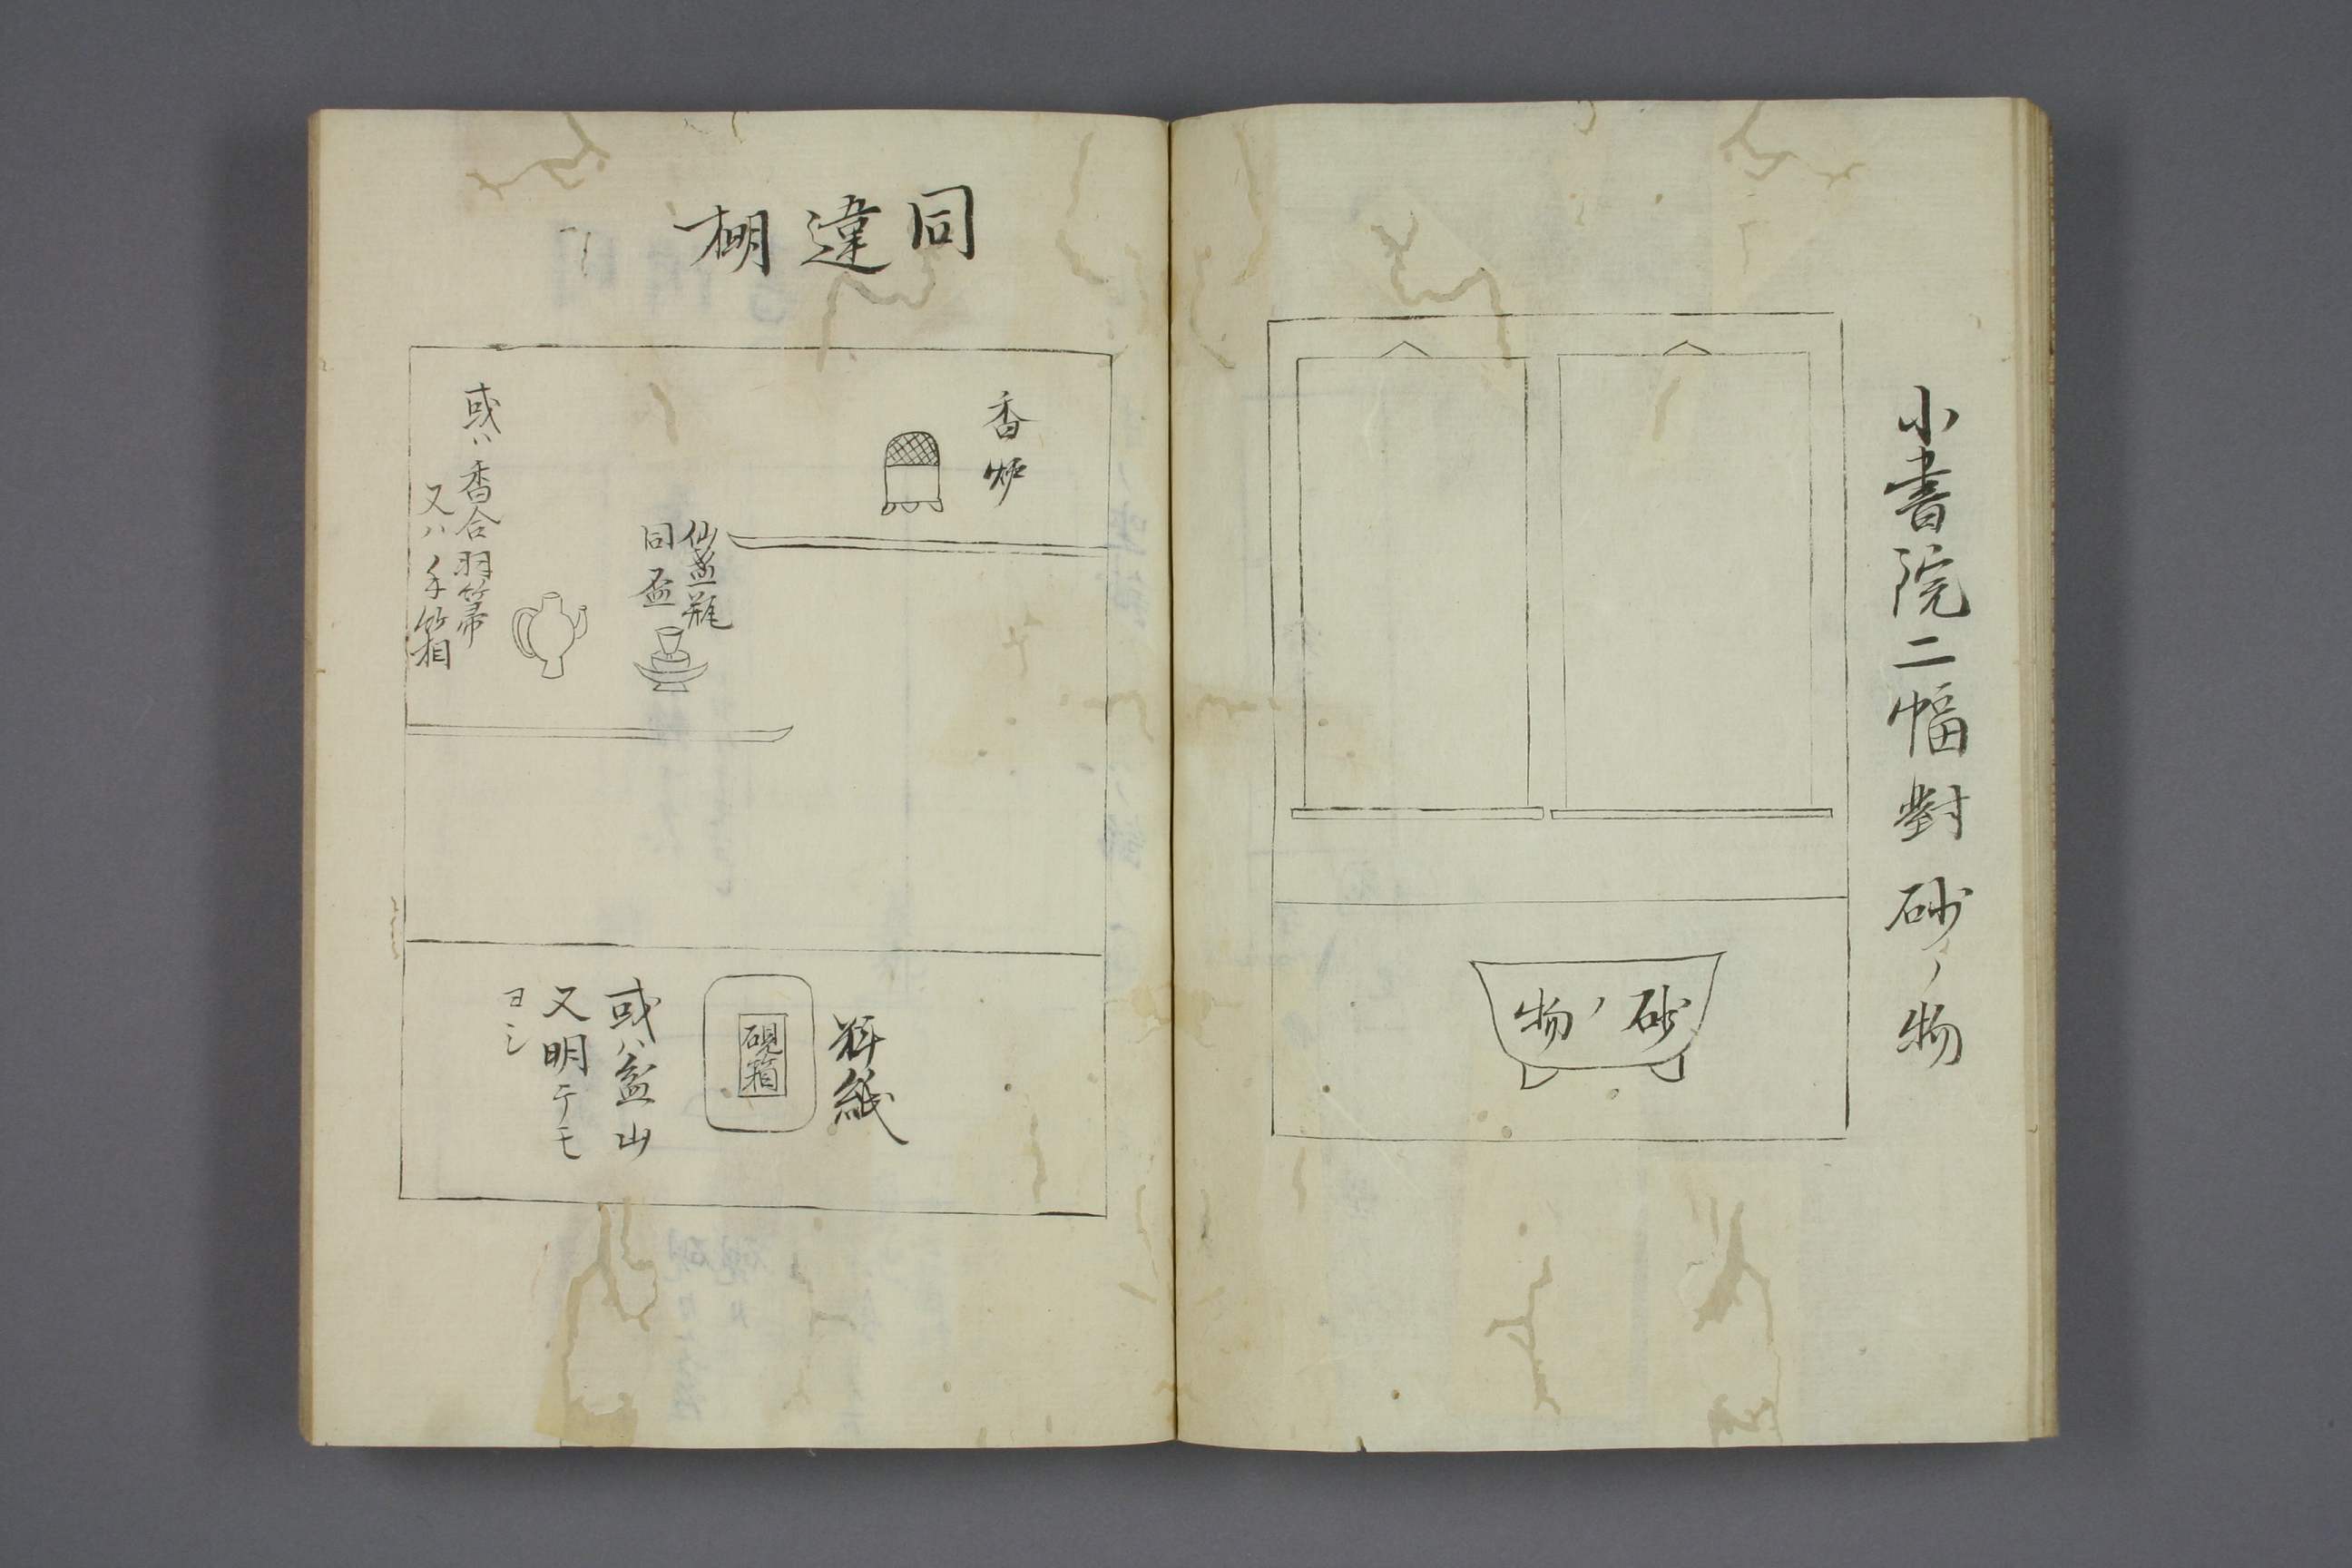 小書院二幅對砂ノ物
砂ノ物
同違棚
香炉
仙盞瓶
同盃
或ハ香合羽箒
又ハ手箱
料紙
硯箱
或ハ盆山
又明テモ
ヨシ